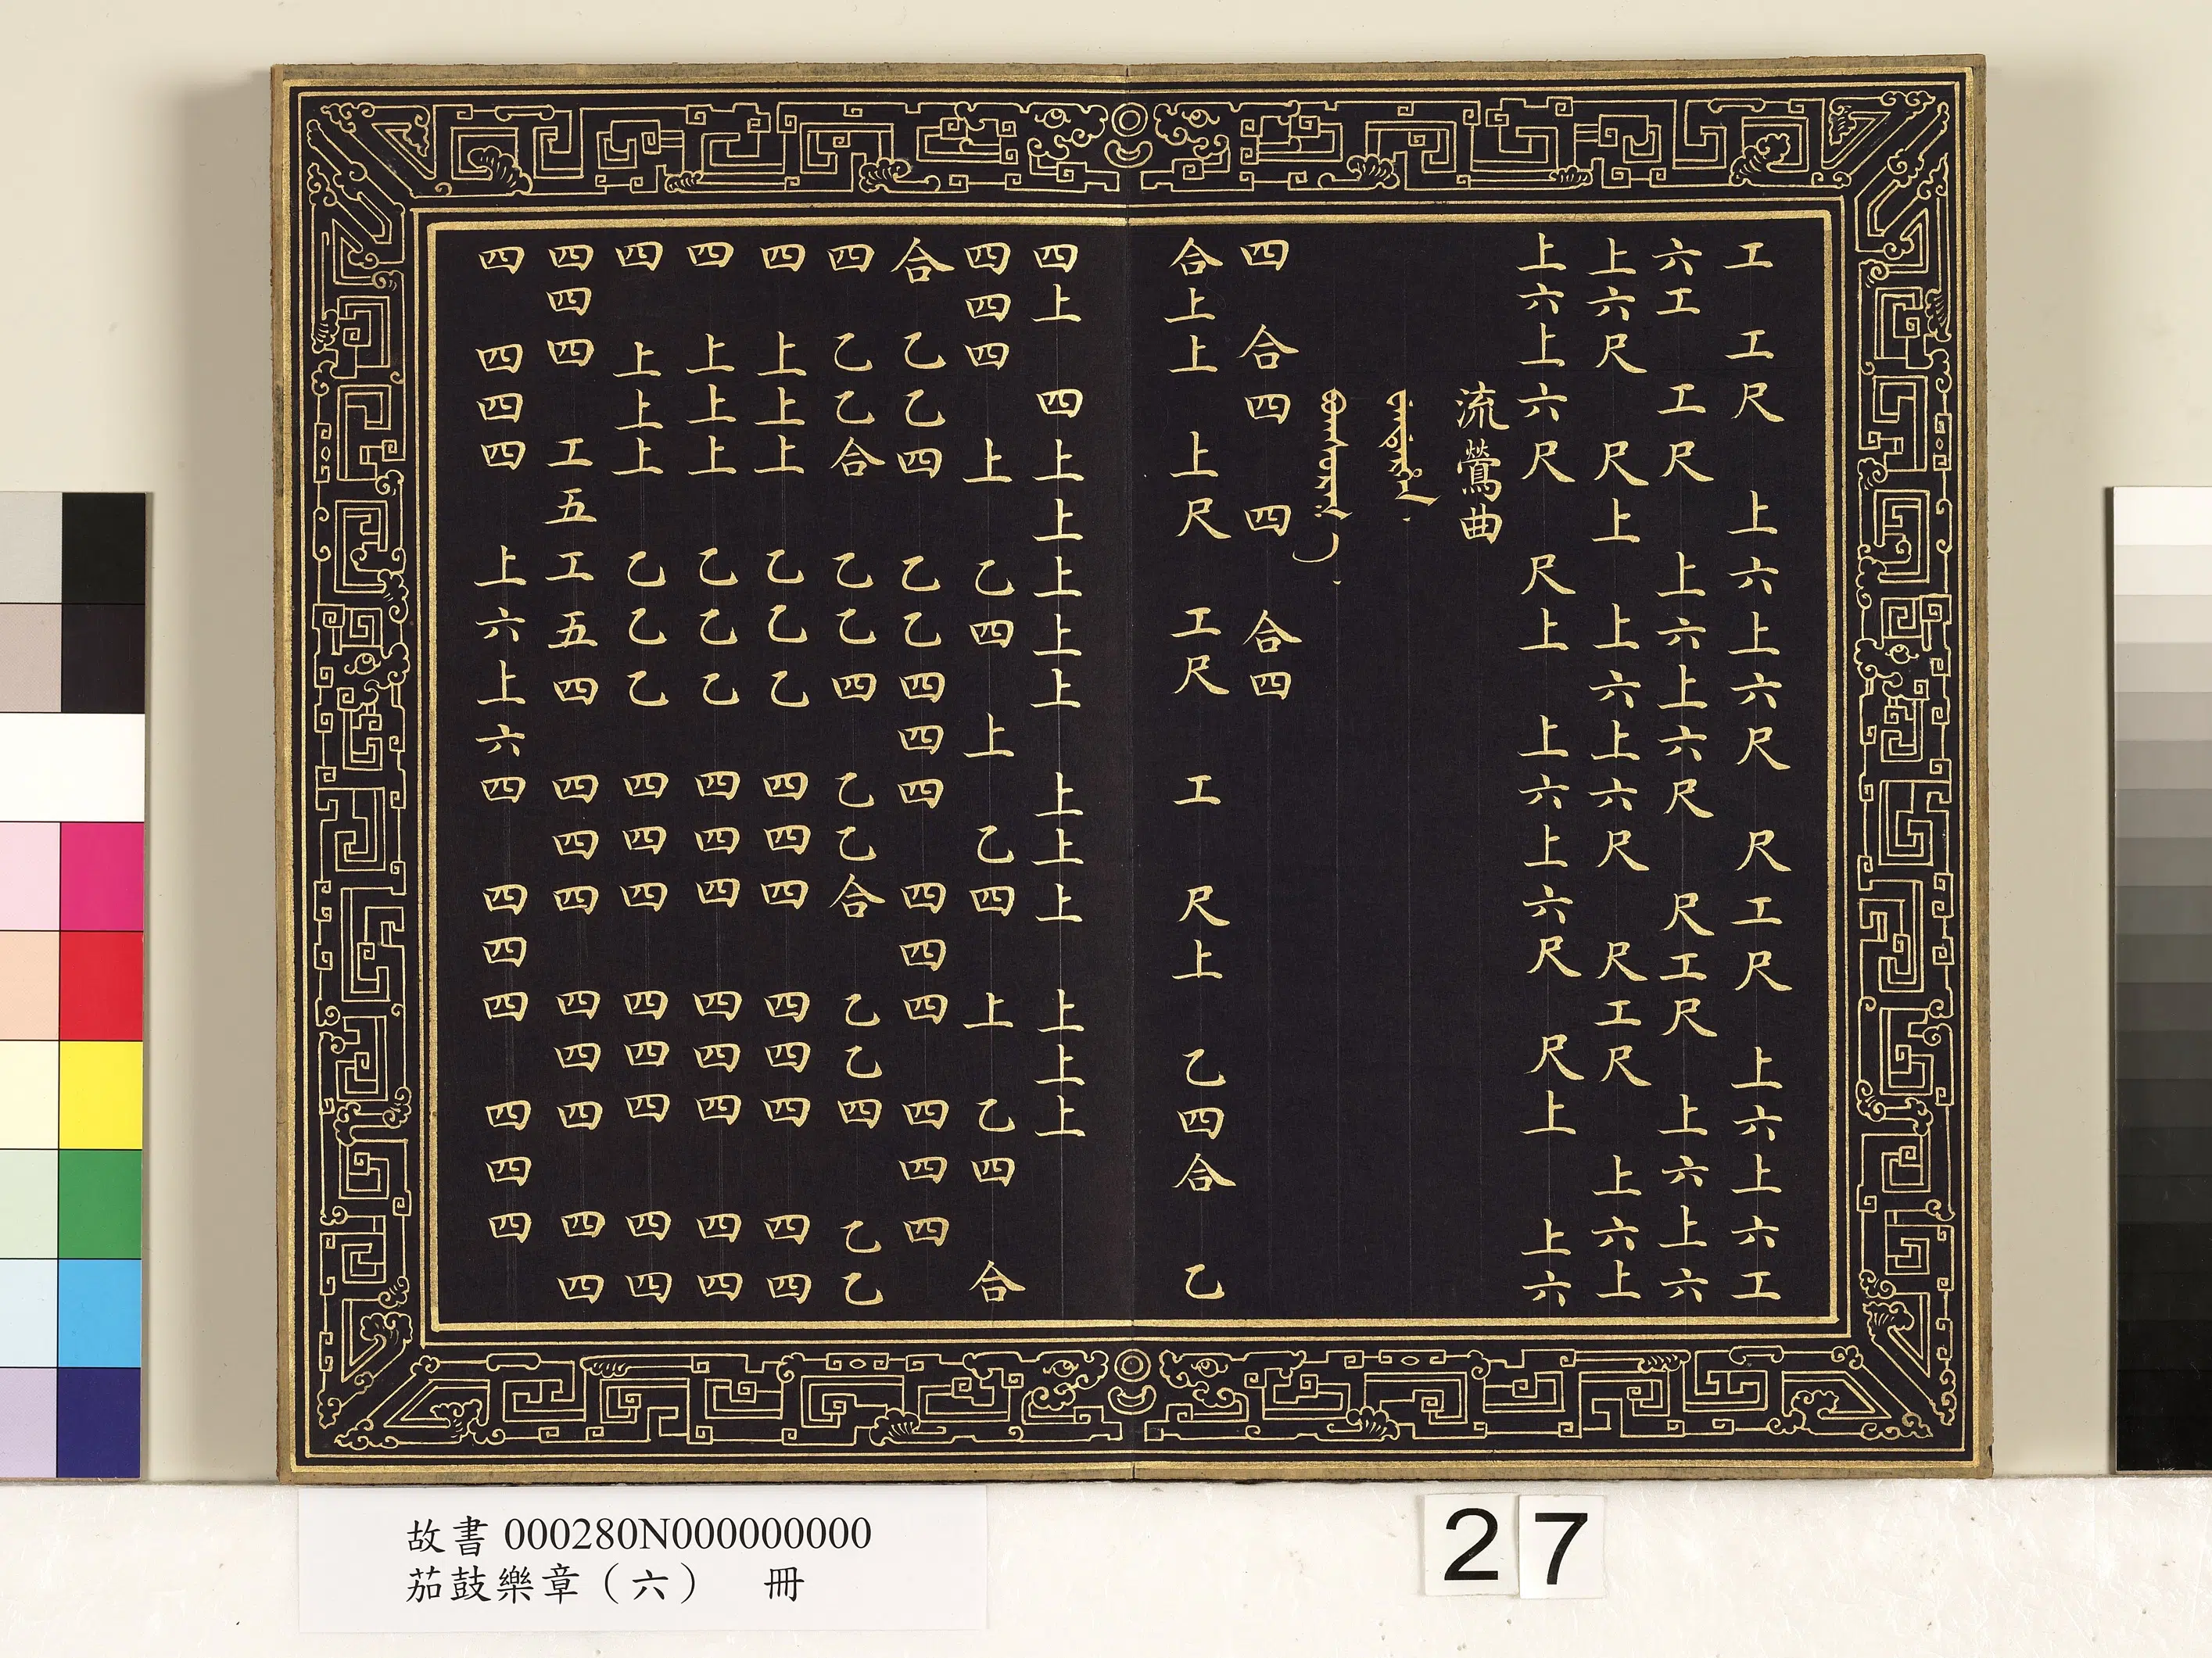 工 工尺 上六上六尺 尺工尺 上六上六工
六工 工尺 上六上六尺 尺工尺 上六上六
上六尺 尺上 上六上六尺 尺工尺 上六上
上六上六尺 尺上 上六上六尺 尺上 上六
流鶯曲
四 合四 四 合四
合上上 上尺 工尺 工 尺上 乙四合 乙
四上 四上上上上上 上上上 上上上
四四四 上 乙四 上 乙四 上 乙四 合
合 乙乙四 乙乙四四四 四四四 四四四
四 乙乙合 乙乙四 乙乙合 乙乙四 乙乙
四 上上上 乙乙乙 四四四 四四四 四四
四 上上上 乙乙乙 四四四 四四四 四四
四 上上上 乙乙乙 四四四 四四四 四四
四四四 工五工五四 四四四 四四四 四四
四 四四四 上六上六四 四四四 四四四
故書 000280N000000000
茄鼓樂章（六） 冊
27